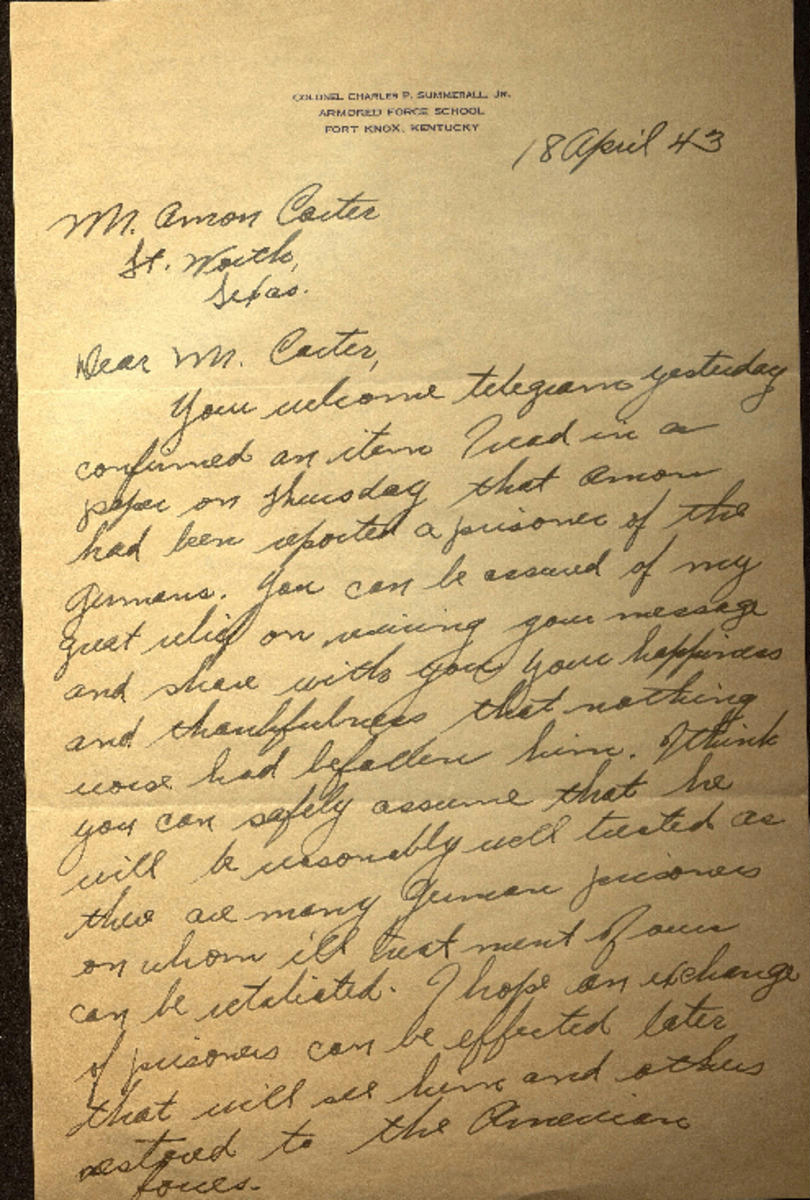 COLONEL CHARLES P. SUMMERALL, JR.
ARMORED FORCE SCHOOL
FORT KNOX, KENTUCKY
18 April 43
Mr. Amon Carter
Ft. Worth,
Texas.
Dear Mr. Carter,
Your welcome telegram yesterday
confirmed an item I read in a
paper on Thursday that Amon
had been reported a prisoner of the
Germans. You can be assured of my
great relief on receiving your message
and share with you your happiness
and thankfulness that nothing
worse had befallen him. I think
you can safely assume that he
will be reasonably well treated as
there are many German prisoners
on whom ill treatment of ours
can be retaliated. I hope an exchange
of prisoners can be effected later
that will see him and others
restored to the American
forces.